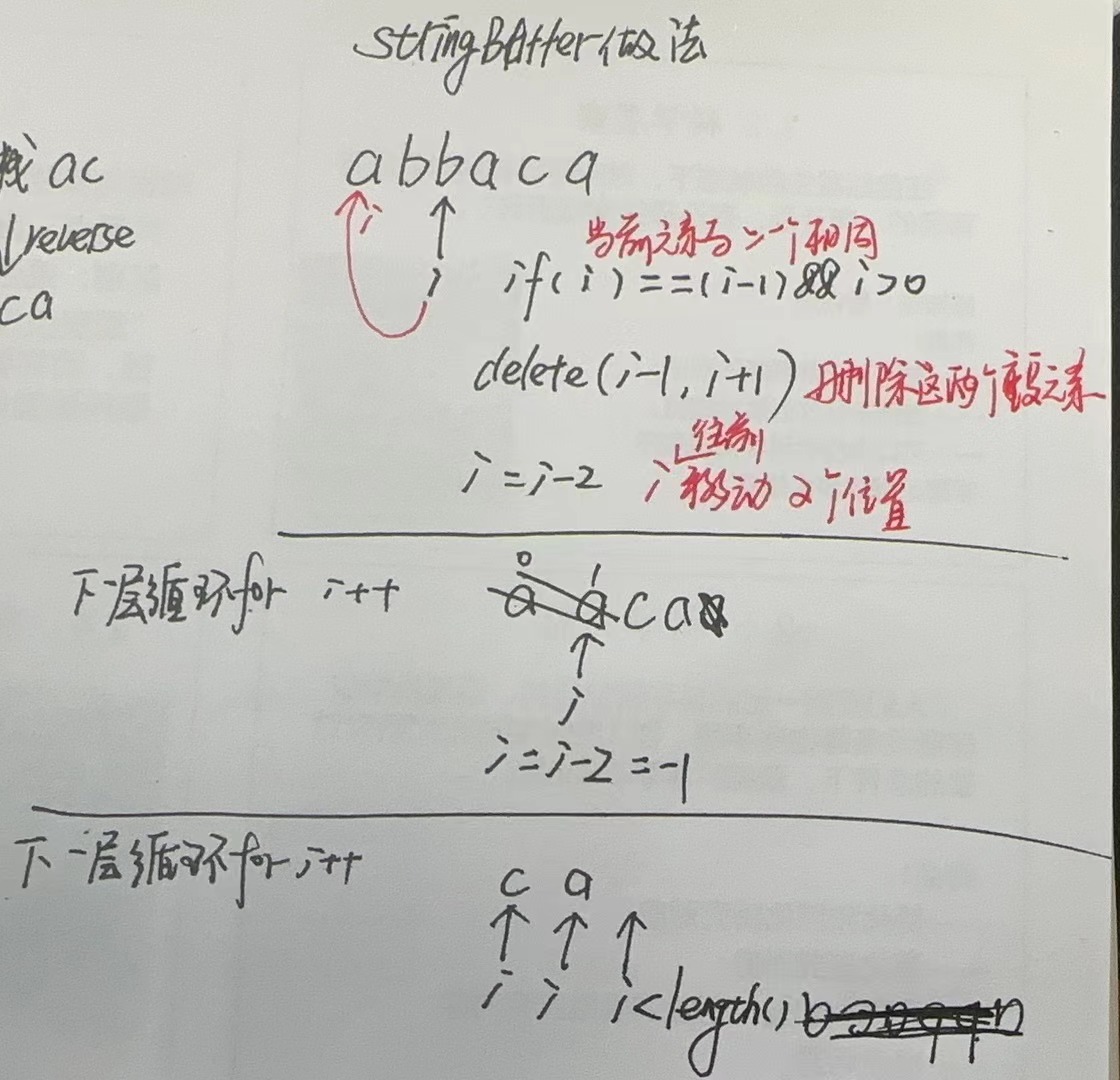 stringBuffer做法
栈 ac
reverse
ca
abbaca
i
i
当前元素与上一个相同
if(i)==(i-1)&&i>0
delete(i-1,i+1) 删除这两个元素
i=i-2 i往前移动2个位置
下一层循环for i++
0 1
a a c a
i
i=i-2=-1
下一层循环for i++
c a
i i i<length()